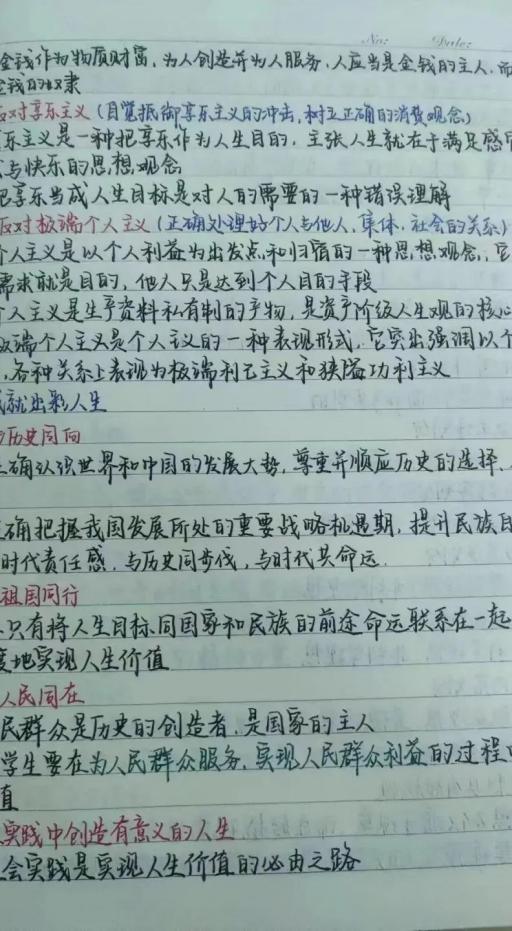 No: Date:
金钱作为物质财富,为人创造并为人服务,人应当是金钱的主人,而
金钱的奴隶
反对享乐主义(自觉抵御享乐主义的冲击,树立正确的消费观念)
乐主义是一种把享乐作为人生目的,主张人生就在于满足感官
与快乐的思想观念
把享乐当成人生目标是对人的需要的一种错误理解
反对极端个人主义(正确处理好个人与他人、集体、社会的关系)
个人主义是以个人利益为出发点和归宿的一种思想观念,它
需求就是目的,他人只是达到个人目的手段
个人主义是生产资料私有制的产物,是资产阶级人生观的核心
极端个人主义是个人主义的一种表现形式,它突出强调以个
,各种关系上表现为极端利己主义和狭隘功利主义
成就出彩人生
与历史同向
正确认识世界和中国的发展大势,尊重并顺应历史的选择、
正确把握我国发展所处的重要战略机遇期,提升民族自
时代责任感,与历史同步伐,与时代共命运.
祖国同行
只有将人生目标同国家和民族的前途命运联系在一起
度地实现人生价值
人民同在
民群众是历史的创造者,是国家的主人
学生要在为人民群众服务,实现人民群众利益的过程中
值
实践中创造有意义的人生
会实践是实现人生价值的必由之路